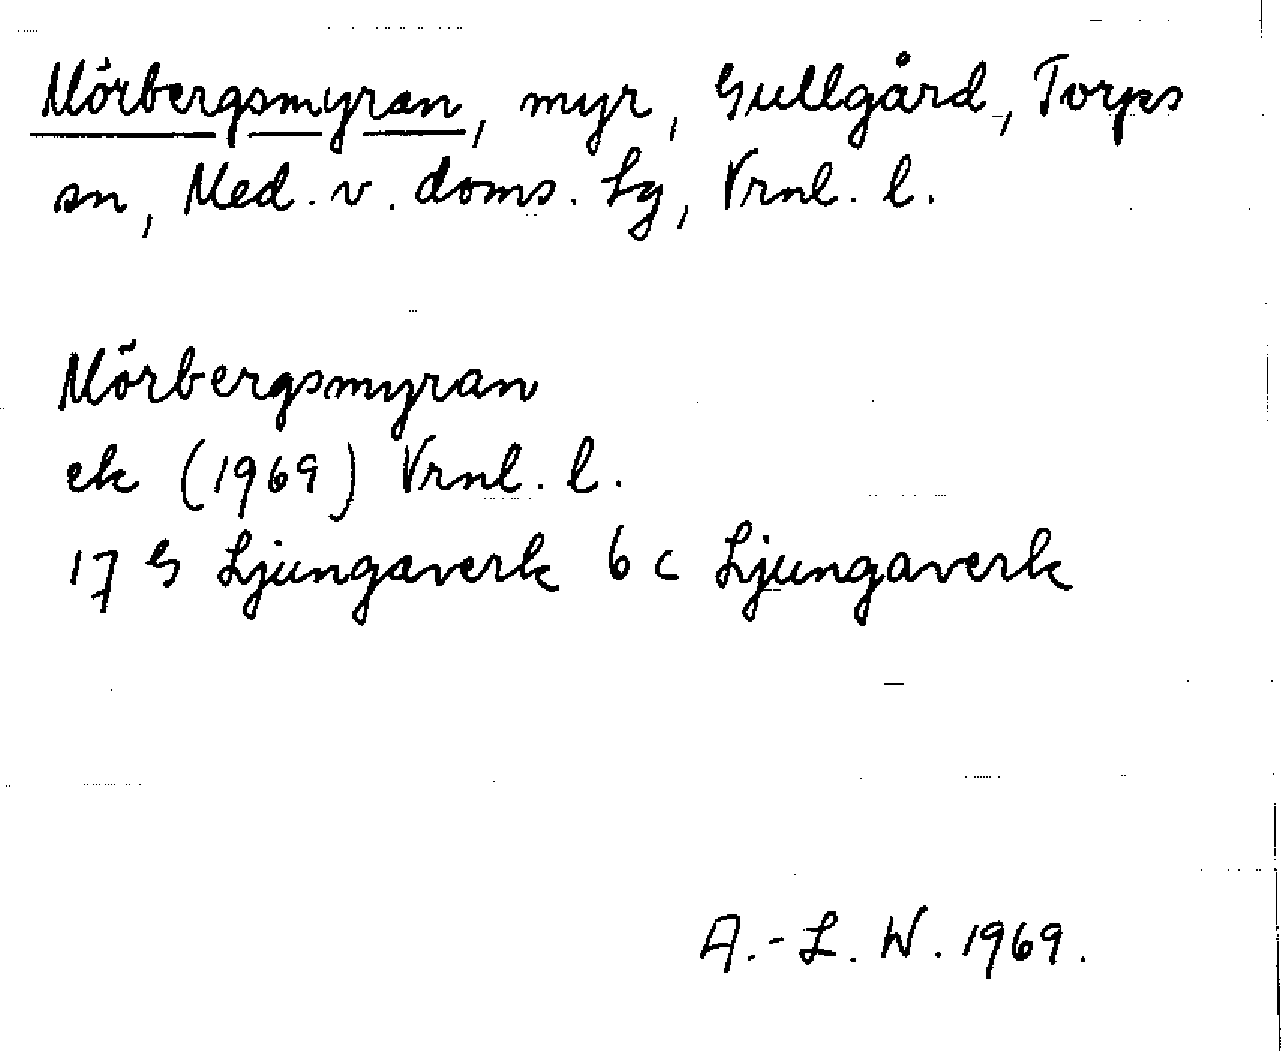 Mörbergsmyran, myr, Gullgård, Torps
sn, Med. v. doms. lg, Vrnl. l.
Mörbergsmyran
ek (1969) Vrnl. l.
17 G Ljungaverk 6 c Ljungaverk
A.-L. W. 1969.